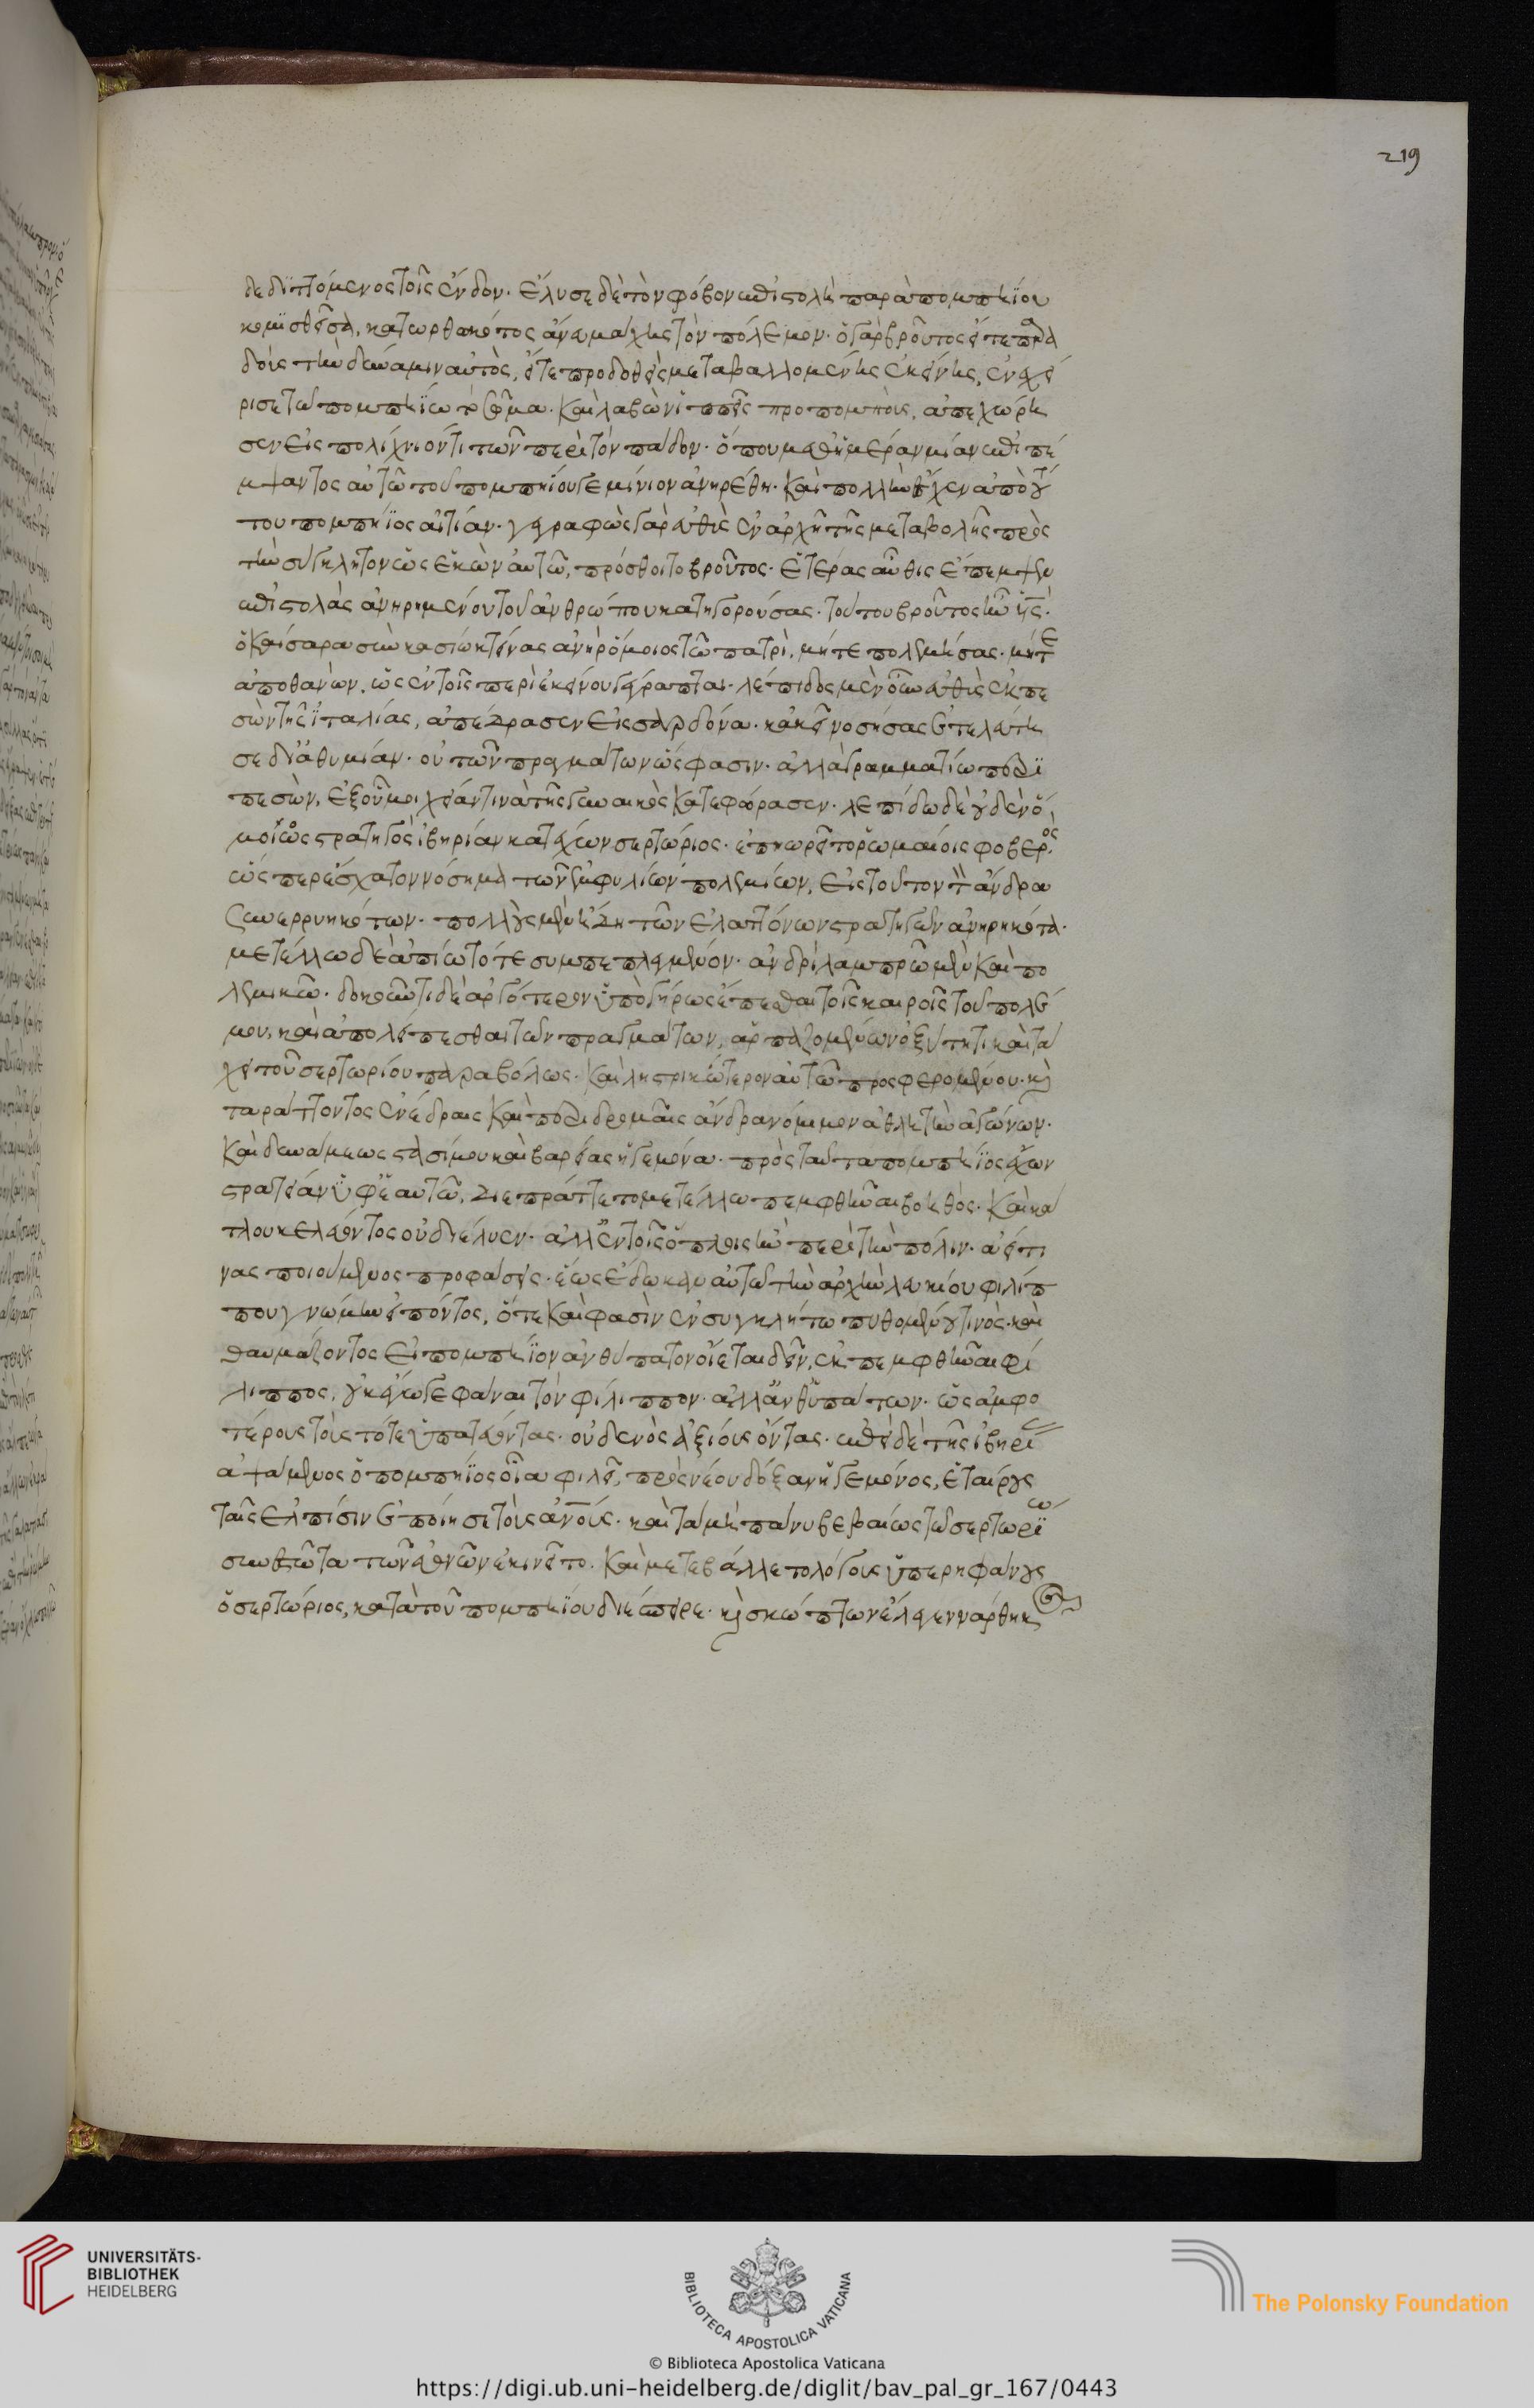 219
δεδιττόμενος τοῖς ἔνδον. ἔλυσε δὲ τὸν φόβον ἐπιστολὴ παρὰ πομπηΐου
κομισθεῖσα, κατωρθωκότος ἄνευ μάχης τὸν πόλεμον. ὁ γὰρ βροῦτος εἴτε παρα
δοὺς τὴν δύναμιν αὐτὸς, εἴτε προδοθεὶς μεταβαλλομένης ἐκείνης, ἐνεχεί
ρισε τῷ πομπηΐῳ τὸ σῶμα. καὶ λαβὼν ἱππεῖς προπομποὺς, ἀπεχώρη
σεν εἰς πολίχνιόν τι τῶν περὶ τὸν πάδον. ὅπου μεθ' ἡμέραν μίαν ἐπιπέ
μψαντος αὐτῷ τοῦ πομπηΐου γεμίνιον ἀνηρέθη. καὶ πολλὴν ἔσχεν ἀπὸ τού
του πομπήϊος αἰτίαν. γεγραφὼς γὰρ εὐθὺς ἐν ἀρχῇ τῆς μεταβολῆς πρὸς
τὴν σύγκλητον ὡς ἑκὼν αὐτῷ, πρόσθοιτο βροῦτος. ἑτέρας αὖθις ἔπεμψεν
ἐπιστολὰς ἀνῃρημένου τοῦ ἀνθρώπου κατηγορούσας. τούτου βροῦτος ἦν υἱὸς.
ὁ καίσαρα σὺν κασίῳ κτείνας ἀνὴρ ὅμοιος τῷ πατρὶ, μήτε πολεμήσας. μήτε
ἀποθανὼν, ὡς ἐν τοῖς περὶ ἐκείνου γέγραπται. λέπιδος μὲν οὖν εὐθὺς ἐκπε
σὼν τῆς ἰταλίας, ἀπεπέρασεν εἰς σαρδόνα. κἀκεῖ νοσήσας ἐτελεύτη
σε δι' ἀθυμίαν. οὐ τῶν πραγμάτων ὥς φασιν. ἀλλὰ γραμματίῳ περι
πεσὼν, ἐξ οὗ μοιχείαν τινὰ τῆς γυναικὸς κατεφώρασεν. λεπίδῳ δὲ οὐδὲν ὅ
μοιος στρατηγὸς ἰβηρίαν κατέχων σερτώριος. ἐπῃωρεῖτο ῥωμαίοις φοβερός.
ὥσπερ ἔσχατον νόσημα τῶν ἐμφυλίων πολεμίων, εἰς τοῦτον τὸν ἄνδρα
συνερρυηκότων. πολλοὺς μὲν ἤδη τῶν ἐλαττόνων στρατηγῶν ἀνῃρηκότα.
μετέλλῳ δὲ ἀπίῳ τότε συμπεπλεγμένον. ἀνδρὶ λαμπρῷ μὲν καὶ πο
λεμικῷ. δοκοῦντι δὲ ἀργότερον ὑπὸ γήρως ἕπεσθαι τοῖς καιροῖς τοῦ πολέ
μου, καὶ ἀπολείπεσθαι τῶν πραγμάτων, ἁρπαζομένων ὀξύτητι καὶ τά
χει τοῦ σερτωρίου παραβόλως. καὶ λῃστρικώτερον αὐτῷ προσφερομένου. καὶ
ταράττοντος ἐνέδραις καὶ περιδρομαῖς ἄνδρα νομίμων ἀθλητὴν ἀγώνων.
καὶ δυνάμεως στασίμου καὶ βαρείας ἡγεμόνα. πρὸς ταῦτα πομπήϊος ἔχων
στρατείαν ὑφ' ἑαυτῷ, διεπράττετο μετέλλῳ πεμφθῆναι βοηθός. καὶ κα
τλου κελεύοντος οὐ διέλυεν. ἀλλ' ἐν τοῖς ὅπλοις ἦν περὶ τὴν πόλιν. ἀεί τι
νας ποιούμενος προφάσεις. ἕως ἔδωκαν αὐτῷ τὴν ἀρχὴν λευκίου φιλίπ
που γνώμην εἰπόντος, ὅτε καὶ φασὶν ἐν συγκλήτῳ πυθομένου τινὸς. καὶ
θαυμάζοντος εἰ πομπήϊον ἀνθύπατον οἴεται δεῖν, ἐκπεμφθῆναι φί
λιππος, οὐκ ἔγωγε φάναι τὸν φίλιππον. ἀλλ' ἀνθ' ὑπάτων. ὡς ἀμφο
τέρους τοὺς τότε ὑπατεύοντας. οὐδενὸς ἀξίους ὄντας. ἐπεὶ δὲ τῆς ἰβηρί
ἁψάμενος ὁ πομπήϊος οἷα φιλεῖ, πρὸς νέου δόξαν ἡγεμόνος, ἑταίρους
ταῖς ἐλπίσιν ἐποίησε τοὺς ἀν̅ους. καὶ τὰ μὴ πάνυ βεβαίως τῷ σερτωρίῳ
συνεστῶτα τῶν ἐθνῶν ἐκινεῖτο. καὶ μετεβάλλετο λόγους ὑπερηφάνους
ὁ σερτώριος, κατὰ τοῦ πομπηΐου διέσπειρε. καὶ σκώπτων ἔλεγεν νάρθηκος
UNIVERSITÄTS-
BIBLIOTHEK
HEIDELBERG
BIBLIOTECA APOSTOLICA VATICANA
The Polonsky Foundation
© Biblioteca Apostolica Vaticana
https://digi.ub.uni-heidelberg.de/diglit/bav_pal_gr_167/0443